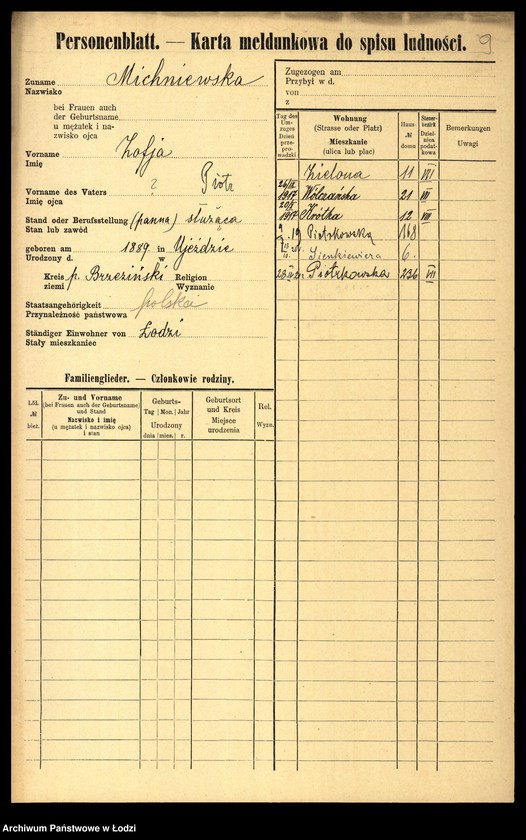 Personenblatt. — Karta meldunkowa do spisu ludności.
9
Zuname Michniewska
Nazwisko
bei Frauen auch
der Geburtsname
u mężatek i na-
zwisko ojca
Vorname Zofja
Imię
Vorname des Vaters ? Piotr
Imię ojca
Stand oder Berufsstellung (panna) służąca
Stan lub zawód
geboren am 1889 in Ujeździe
Urodzony d. w
Kreis p. Brzeziński Religion
ziemi Wyznanie
Staatsangehörigkeit polska
Przynależność państwowa
Ständiger Einwohner von Łodzi
Stały mieszkaniec
Familienglieder. — Członkowie rodziny.
Lfd.
№
bież.
Zu- und Vorname
(bei Frauen auch der Geburtsname)
und Stand
Nazwisko i imię
(u mężatek i nazwisko ojca)
i stan
Geburts-
Tag Mon. Jahr
Urodzony
dnia mies. r.
Geburtsort
und Kreis
Miejsce
urodzenia
Rel.
Wyzn.
Zugezogen am
Przybył w d.
von
z
Tag des
Um-
zuges
Dzień
prze-
prowadzki
Wohnung
(Strasse oder Platz)
Mieszkanie
(ulica lub plac)
Haus-
№
domu
Steuer-
bezirk
Dziel-
nica
podat-
kowa
Bemerkungen
Uwagi
Zielona 11 VII
1917 Wólczańska 21 VII
1917 Krótka 12 VIII
19 Piotrkowska 168
Sienkiewicza 6.
Piotrkowska 236 VII
Archiwum Państwowe w Łodzi